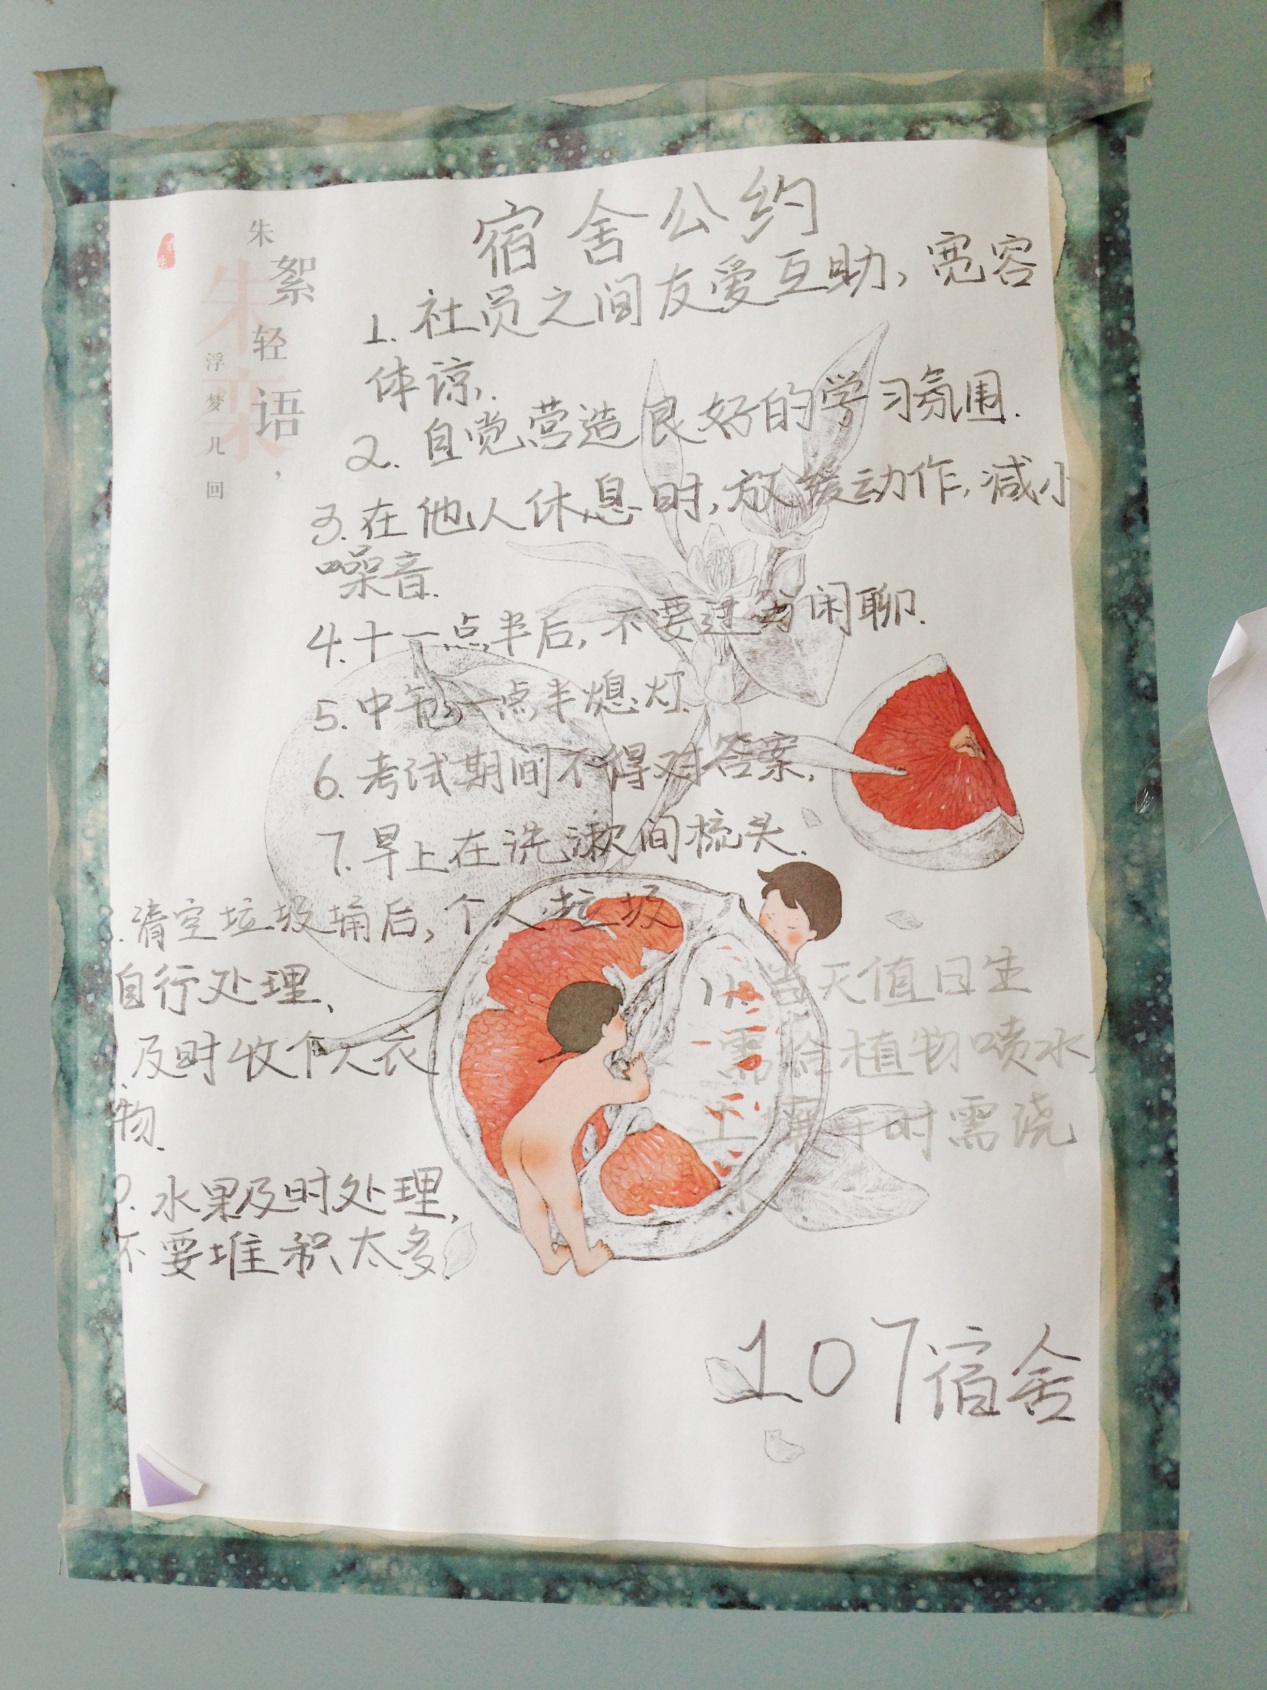 宿舍公约
1. 社员之间友爱互助，宽容
体谅.
2. 自觉营造良好的学习氛围.
3. 在他人休息时，放缓动作，减小
噪音.
4. 十一点半后，不要过分闲聊.
5. 中午一点半熄灯.
6. 考试期间不得对答案.
7. 早上在洗漱间梳头.
8. 清空垃圾桶后，个人垃圾
自行处理、
及时收个人衣
物.
0. 水果及时处理，
不要堆积太多.
11. 当天值日生
需给植物喷水，
土壤干时需浇
水
107宿舍
朱
絮
轻
语，
朱
栾
浮梦儿回